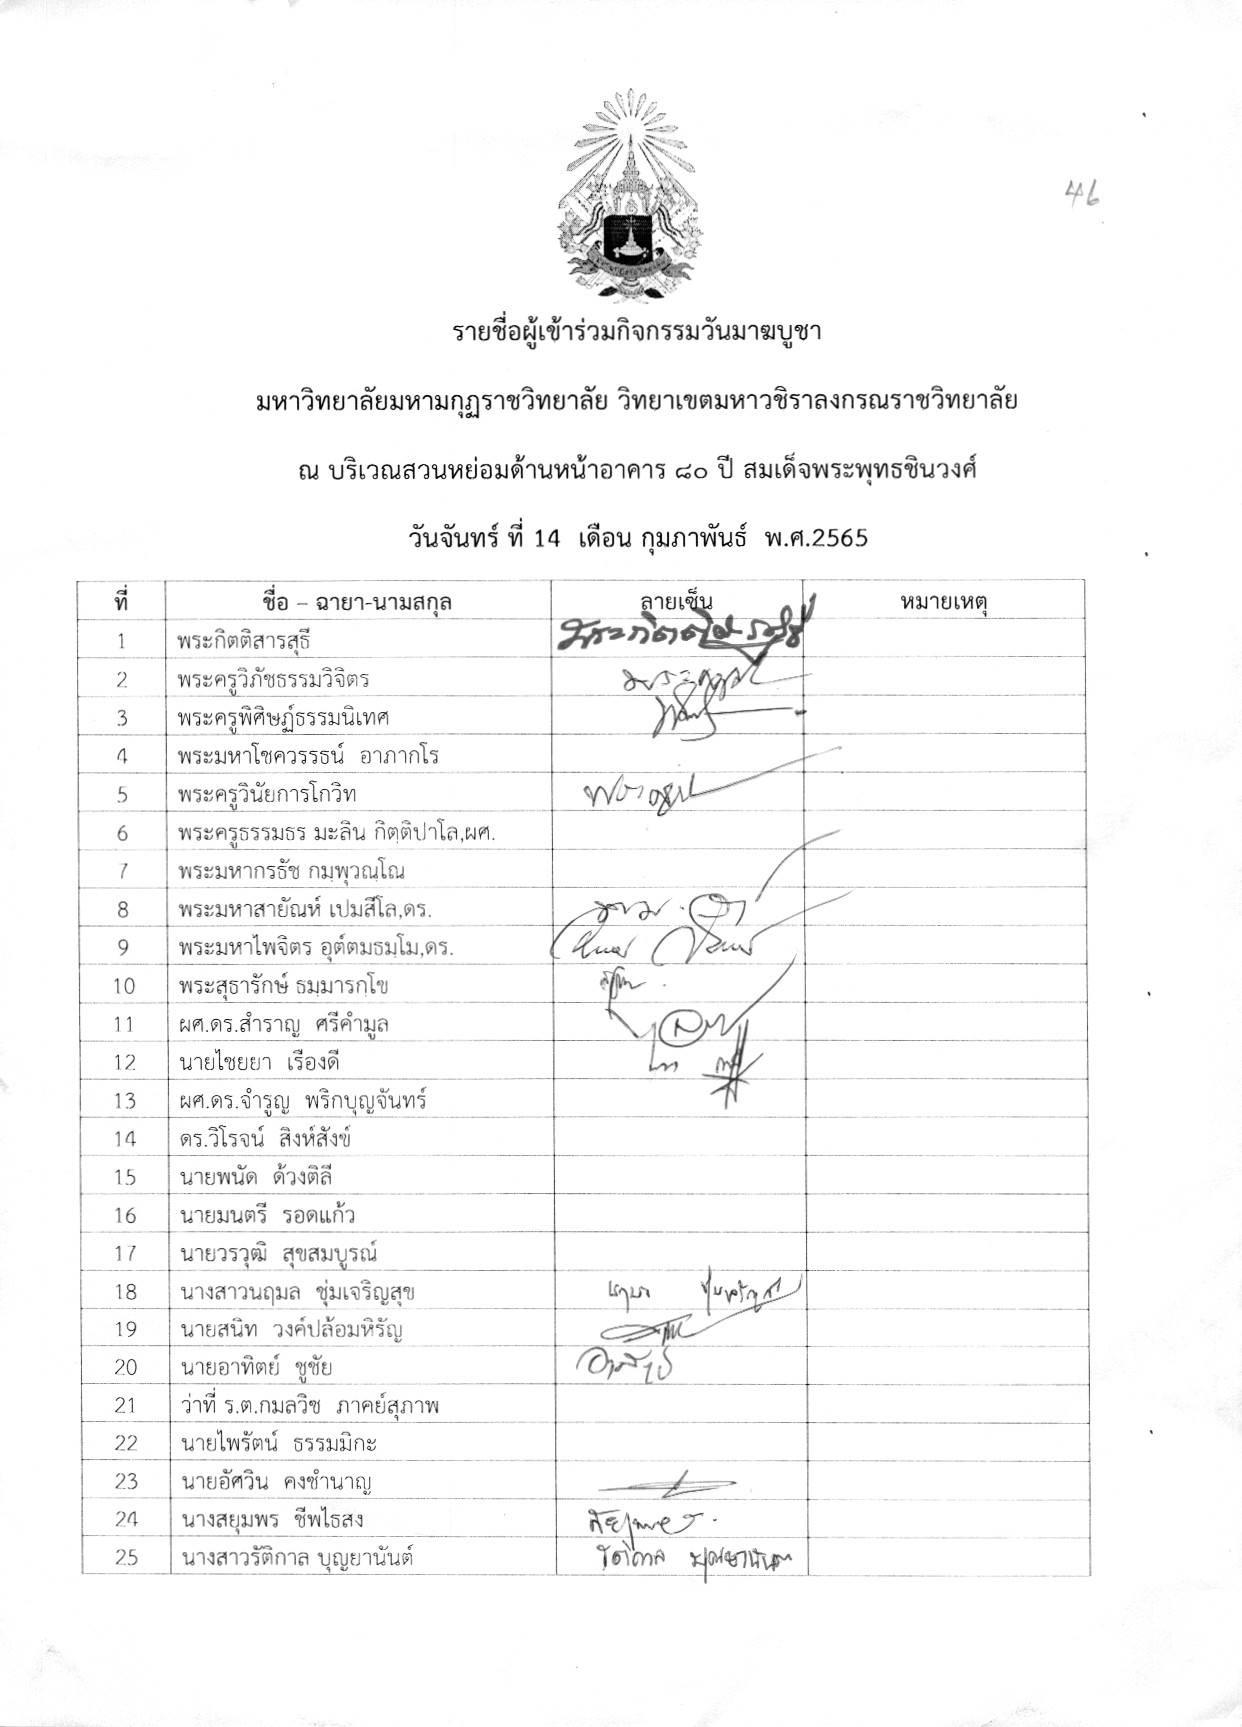 46
รายชื่อผู้เข้าร่วมกิจกรรมวันมาฆบูชา
มหาวิทยาลัยมหามกุฏราชวิทยาลัย วิทยาเขตมหาวชิราลงกรณราชวิทยาลัย
ณ บริเวณสวนหย่อมด้านหน้าอาคาร ๘๐ ปี สมเด็จพระพุทธชินวงศ์
วันจันทร์ ที่ 14 เดือน กุมภาพันธ์ พ.ศ.2565
ที่ ชื่อ – ฉายา-นามสกุล ลายเซ็น หมายเหตุ
1 พระกิตติสารสุธี
2 พระครูวิภัชธรรมวิจิตร
3 พระครูพิศิษฏ์ธรรมนิเทศ
4 พระมหาโชควรรธน์ อาภากโร
5 พระครูวินัยการโกวิท
6 พระครูธรรมธร มะลิน กิตฺติปาโล,ผศ.
7 พระมหากรธัช กมฺพุวณฺโณ
8 พระมหาสายัณห์ เปมสีโล,ดร.
9 พระมหาไพจิตร อุตฺตมธมฺโม,ดร.
10 พระสุธารักษ์ ธมฺมารกฺโข
11 ผศ.ดร.สำราญ ศรีคำมูล
12 นายไชยยา เรืองดี
13 ผศ.ดร.จำรูญ พริกบุญจันทร์
14 ดร.วิโรจน์ สิงห์สังข์
15 นายพนัด ด้วงติลี
16 นายมนตรี รอดแก้ว
17 นายวรวุฒิ สุขสมบูรณ์
18 นางสาวนฤมล ชุ่มเจริญสุข
19 นายสนิท วงค์ปล้อมหิรัญ
20 นายอาทิตย์ ชูชัย
21 ว่าที่ ร.ต.กมลวิช ภาคย์สุภาพ
22 นายไพรัตน์ ธรรมมิกะ
23 นายอัศวิน คงชำนาญ
24 นางสยุมพร ชีพไธสง
25 นางสาวรัติกาล บุญยานันต์